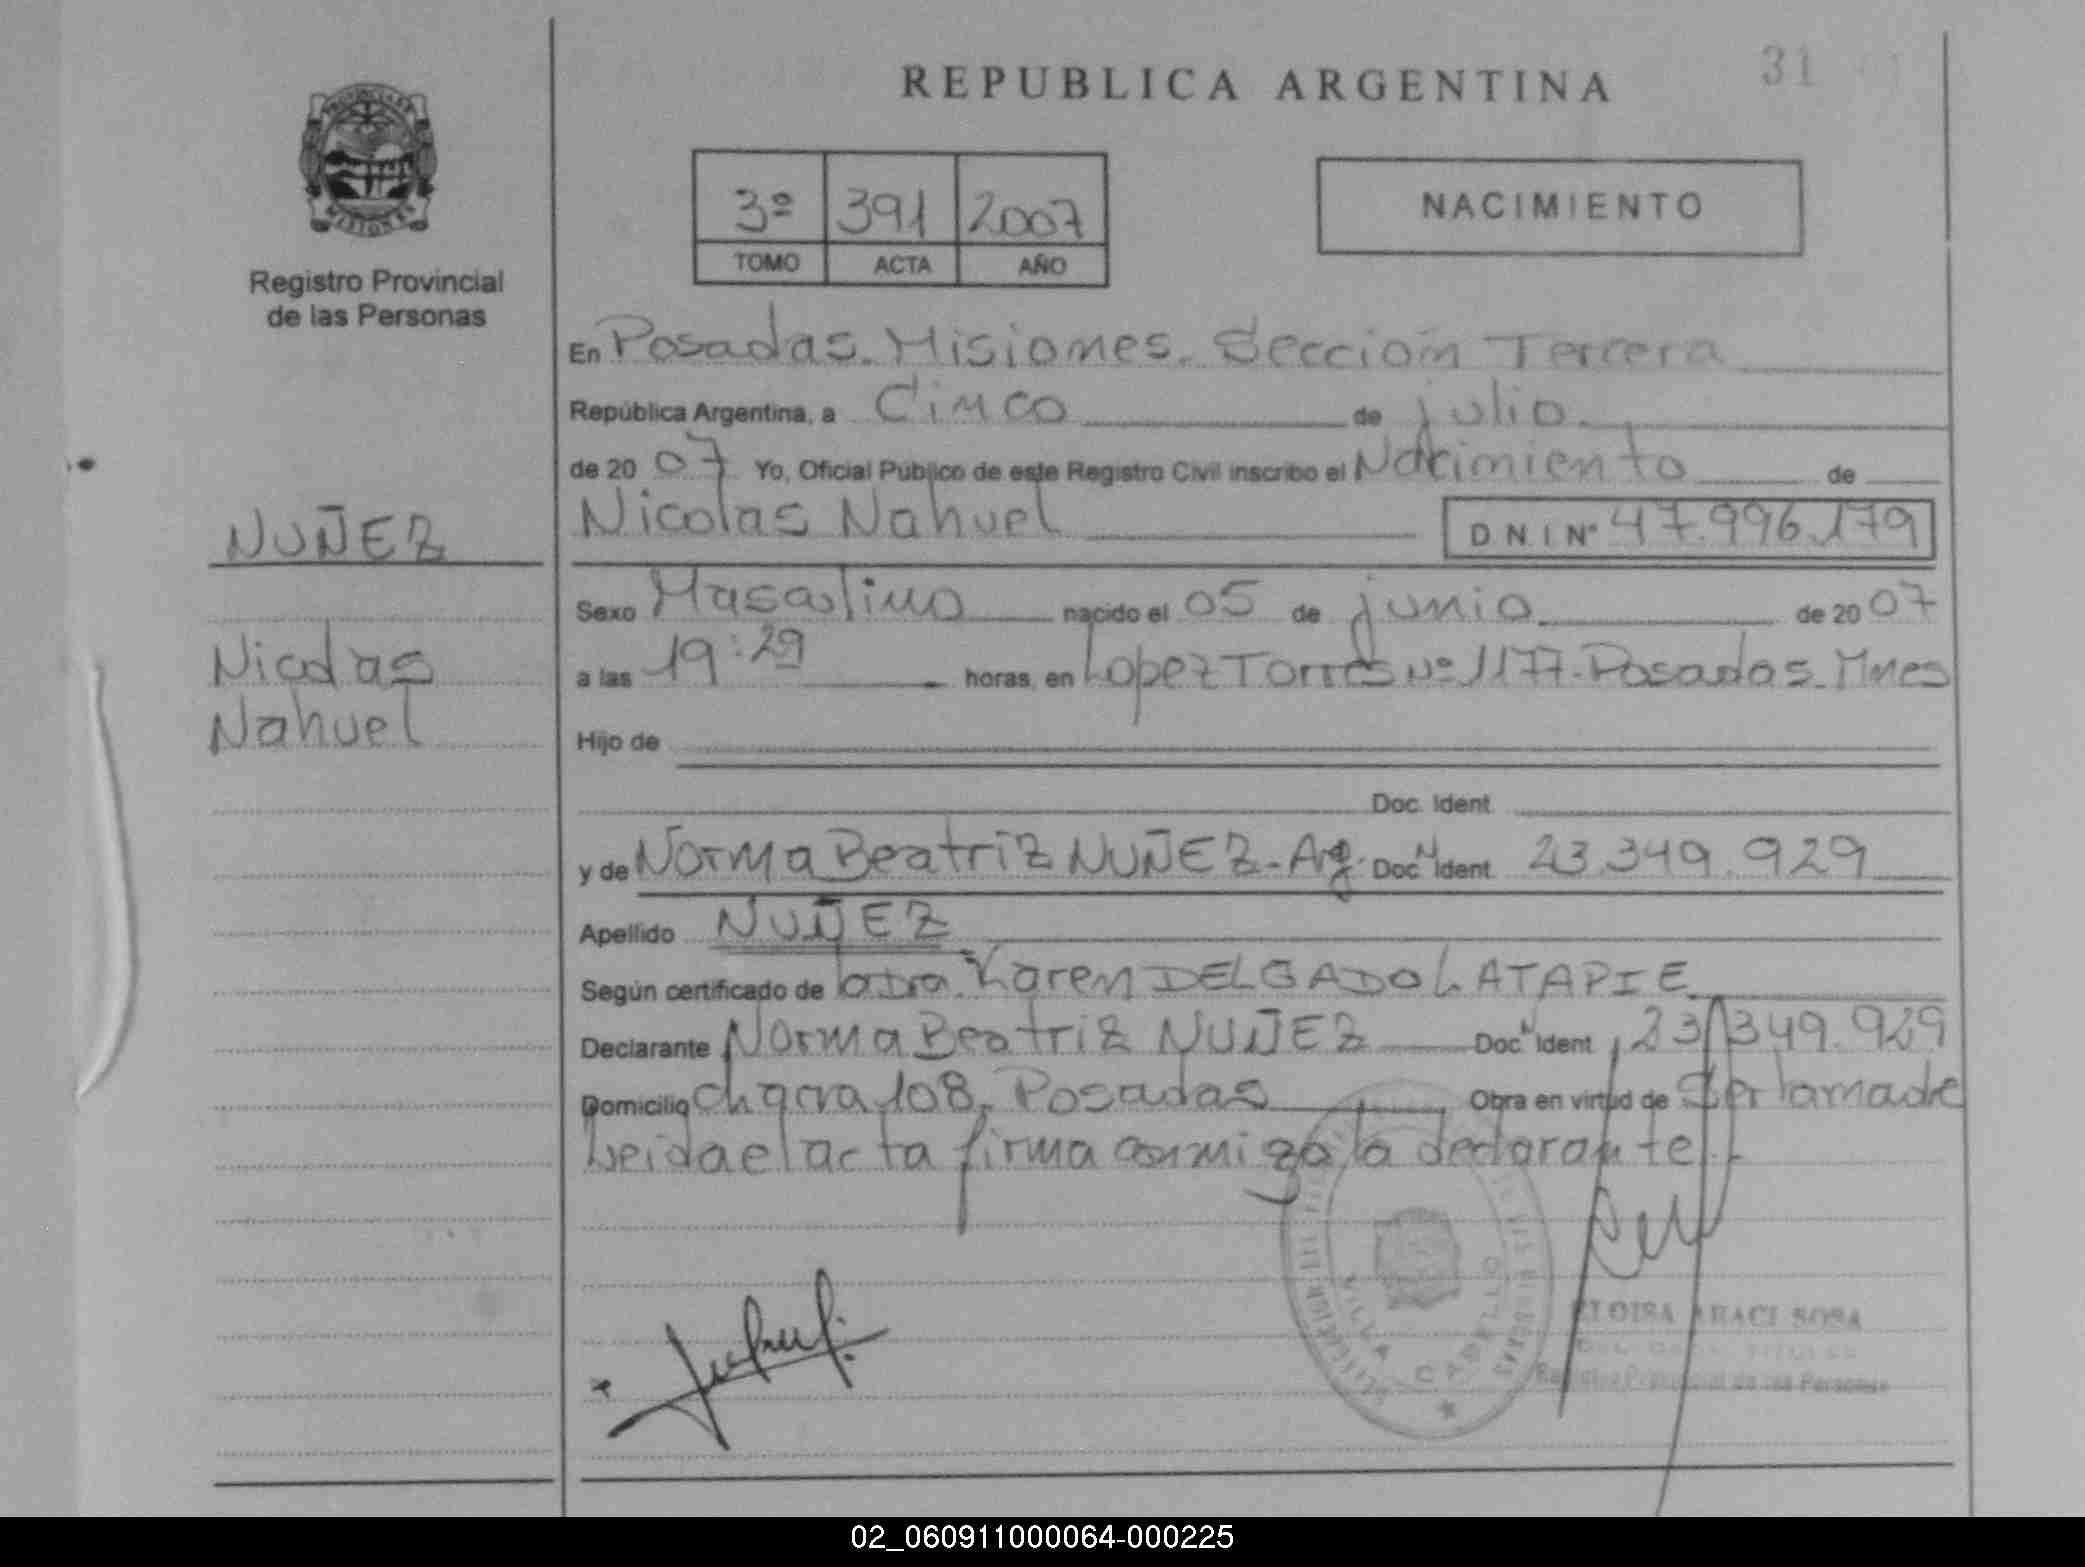 REPUBLICA ARGENTINA
31
PROVINCIA DE
MISIONES
Registro Provincial
de las Personas
3º 391 2007
TOMO ACTA AÑO
NACIMIENTO
NUÑEZ
Nicolas
Nahuel
En Posadas. Misiones. Sección Tercera
República Argentina, a Cinco de julio.
de 20 07 Yo, Oficial Público de este Registro Civil inscribo el Nacimiento de
Nicolas Nahuel D N. I Nº 47.996.179
Sexo Masculino nacido el 05 de junio de 20 07
a las 19:29 horas, en Lopez Torres Nº 1177. Posadas. Mnes
Hijo de
Doc. Ident.
y de Norma Beatriz NUÑEZ - Arg. Doc. N Ident. 23.349.929
Apellido NUÑEZ
Según certificado de la Dra. Karen DELGADO LATAPIE
Declarante Norma Beatriz NUÑEZ Doc. N Ident. 23.349.929
Domicilio Chacra 108. Posadas Obra en virtud de Ser la madre
Leida el acta firma conmigo la declarante.
VILLA CABELLO
ELOISA ARACI SOSA
Registro Provincial de las Personas
02_060911000064-000225